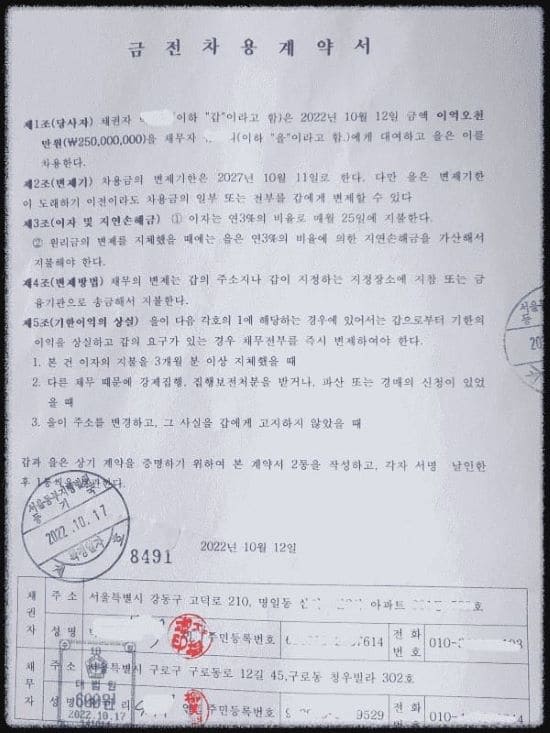 금 전 차 용 계 약 서
제1조(당사자) 채권자 이하 "갑"이라고 함)은 2022년 10월 12일 금액 이억오천
만원(₩250,000,000)을 채무자 (이하 "을"이라고 함.)에게 대여하고 을은 이를
차용한다.
제2조(변제기) 차용금의 변제기한은 2027년 10월 11일로 한다. 다만 을은 변제기한
이 도래하기 이전이라도 차용금의 일부 또는 전부를 갑에게 변제할 수 있다
제3조(이자 및 지연손해금) ① 이자는 연3%의 비율로 매월 25일에 지불한다.
② 원리금의 변제를 지체했을 때에는 을은 연3%의 비율에 의한 지연손해금을 가산해서
지불해야 한다.
제4조(변제방법) 채무의 변제는 갑의 주소지나 갑이 지정하는 지정장소에 지참 또는 금
융기관으로 송금해서 지불한다.
제5조(기한이익의 상실) 을이 다음 각호의 1에 해당하는 경우에 있어서는 갑으로부터 기한의
이익을 상실하고 갑의 요구가 있는 경우 채무전부를 즉시 변제하여야 한다.
1. 본 건 이자의 지불을 3개월 분 이상 지체했을 때
2. 다른 채무 때문에 강제집행, 집행보전처분을 받거나, 파산 또는 경매의 신청이 있었
을 때
3. 을이 주소를 변경하고, 그 사실을 갑에게 고지하지 않았을 때
갑과 을은 상기 계약을 증명하기 위하여 본 계약서 2통을 작성하고, 각자 서명 날인한
후 1통씩을 보관한다.
2022.10.17
확정일자
8491
2022년 10월 12일
채권자 주소 서울특별시 강동구 고덕로 210, 명일동 아파트 호
성명 주민등록번호 7614 전화번호 010-
채무자 주소 서울특별시 구로구 구로동로 12길 45,구로동 청우빌라 302호
성명 주민등록번호 9529 전화번호 010-
대법원
600원
2022.10.17